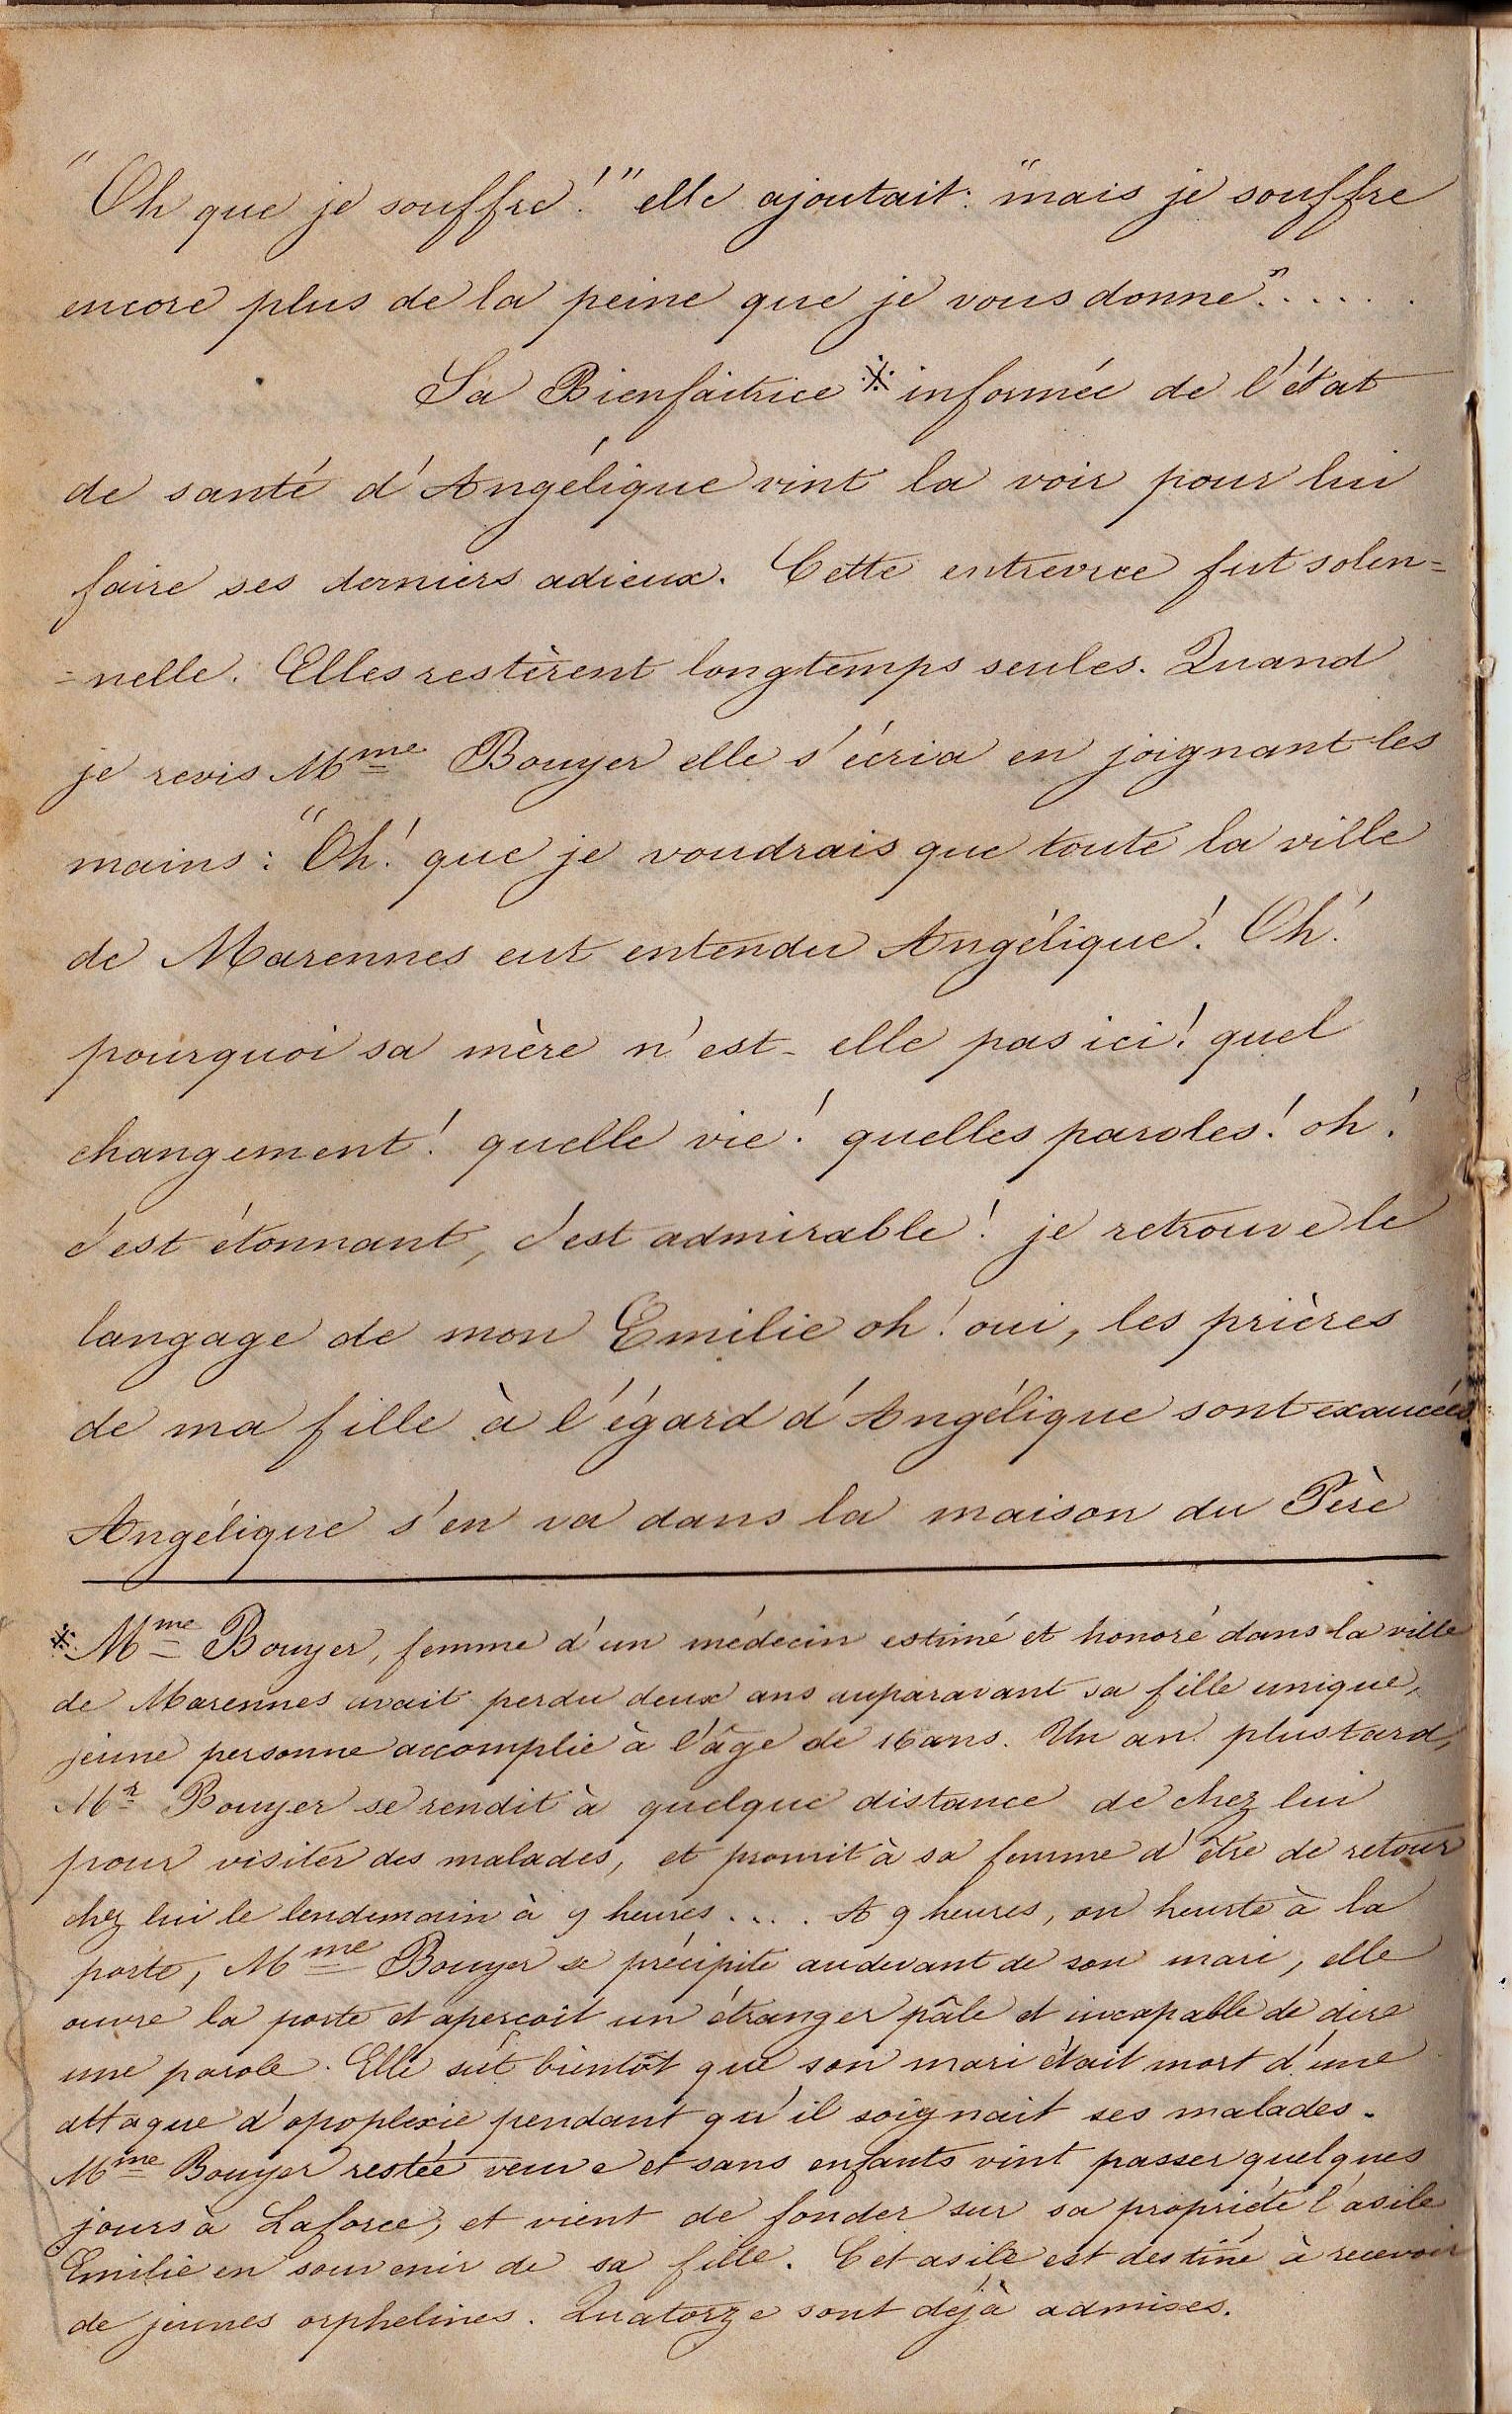 "Oh que je souffre!" elle ajoutait: "mais je souffre
encore plus de la peine que je vous donne"......
Sa Bienfaitrice * informée de l'état
de santé d'Angélique vint la voir pour lui
faire ses derniers adieux. Cette entrevue fut solen=
=nelle. Elles restèrent longtemps seules. Quand
je revis Mme Bouyer elle s'écria en joignant les
mains: "Oh! que je voudrais que toute la ville
de Marennes eut entendu Angélique! Oh!
pourquoi sa mère n'est-elle pas ici! quel
changement! quelle vie! quelles paroles! oh!
c'est étonnant, c'est admirable! je retrouve le
langage de mon Emilie oh! oui, les prières
de ma fille à l'égard d'Angélique sont exaucées
Angélique s'en va dans la maison du Père
* Mme Bouyer, femme d'un médecin estimé et honoré dans la ville
de Marennes avait perdu deux ans auparavant sa fille unique,
jeune personne accomplie à l'âge de 16 ans. Un an plus tard,
Mr Bouyer se rendit à quelque distance de chez lui
pour visiter des malades, et promit à sa femme d'être de retour
chez lui le lendemain à 9 heures.... A 9 heures, on heurte à la
porte, Mme Bouyer se précipite audevant de son mari, elle
ouvre la porte et aperçoit un étranger pâle et incapable de dire
une parole. Elle sût bientôt que son mari était mort d'une
attaque d'apoplexie pendant qu'il soignait ses malades.
Mme Bouyer restée veuve et sans enfants vint passer quelques
jours à Laforce, et vient de fonder sur sa propriété l'asile
Emilie en souvenir de sa fille. Cet asile est destiné à recevoir
de jeunes orphelines. Quatorze sont déjà admises.